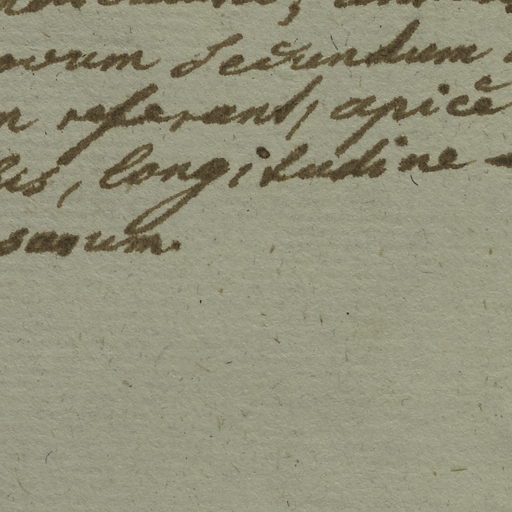 ovum secundum
n referant, apicê
lis, longitudine
sarum.